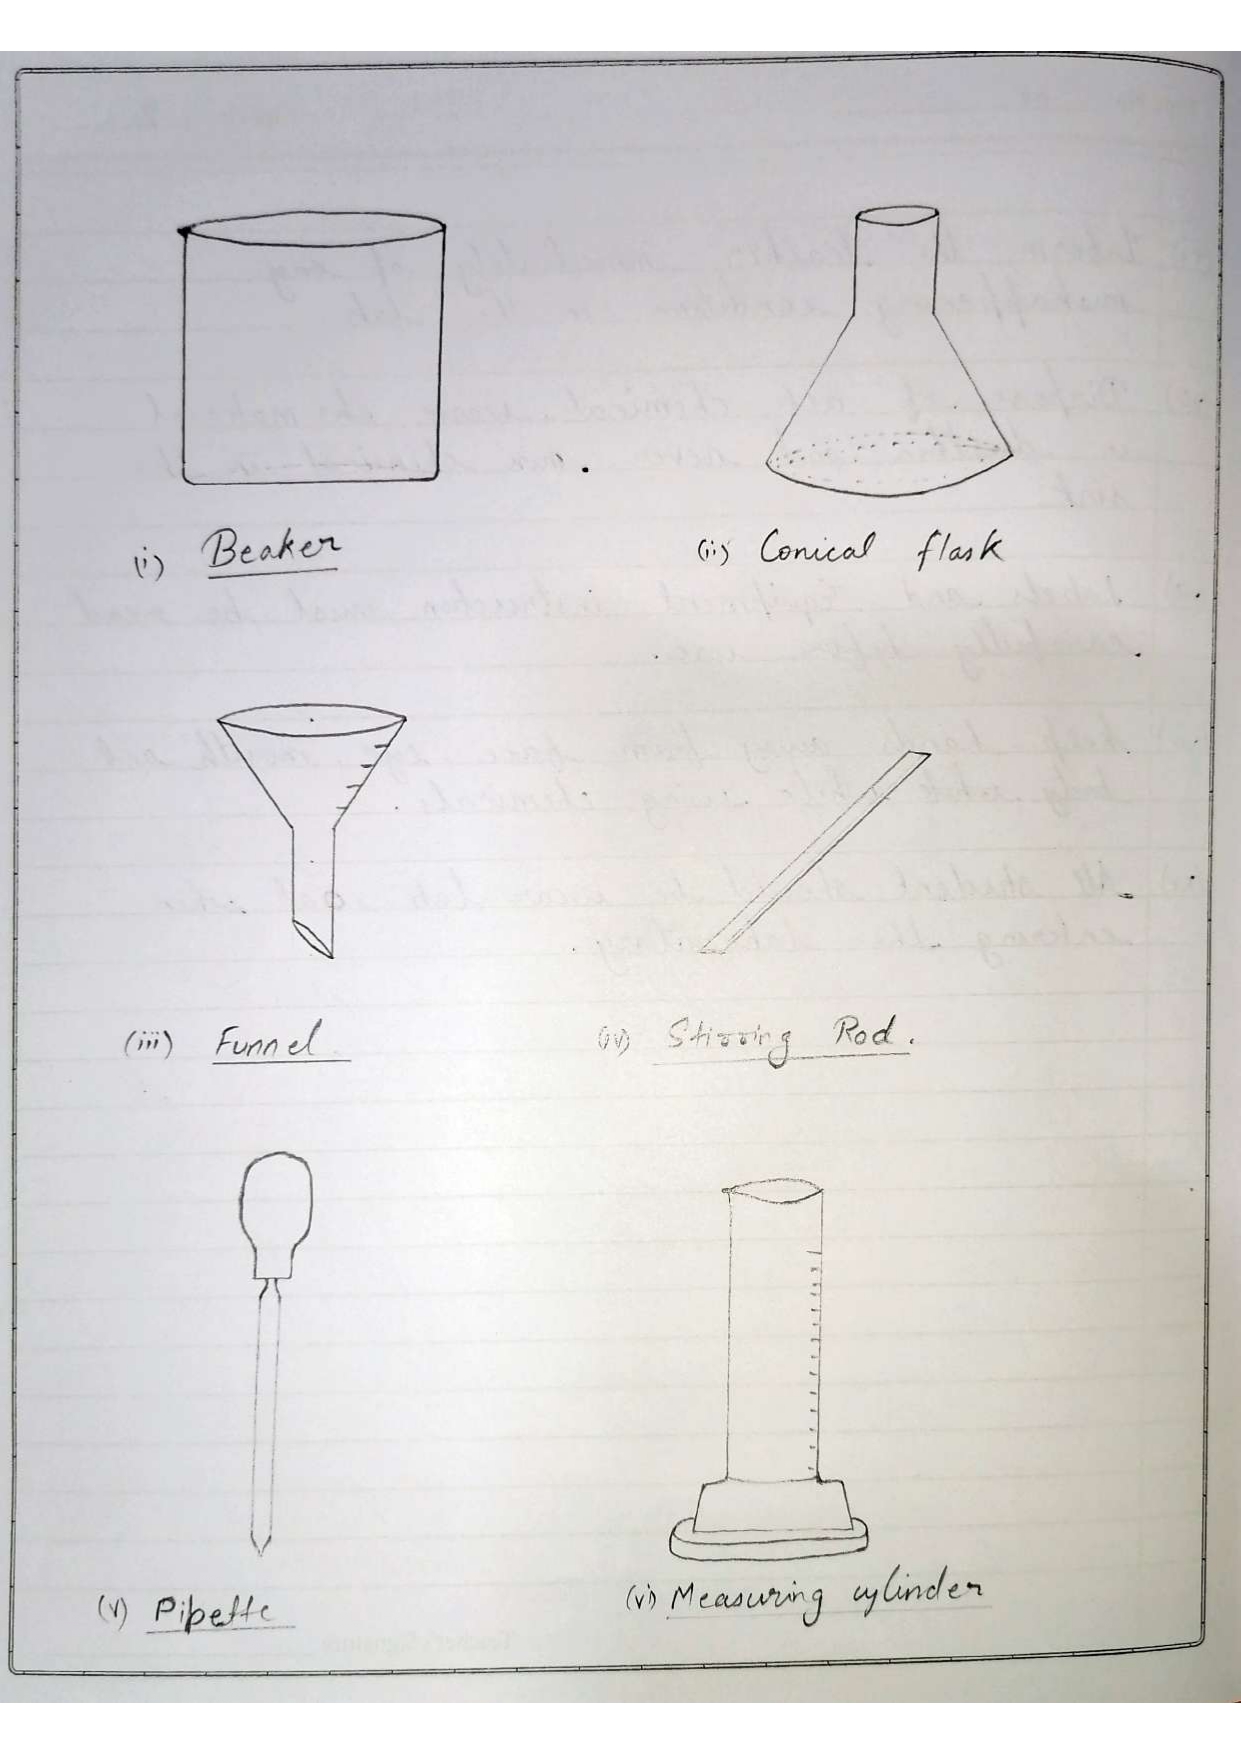 (i) Beaker
(ii) Conical flask
(iii) Funnel
(iv) Stirring Rod.
(v) Pipette
(vi) Measuring cylinder